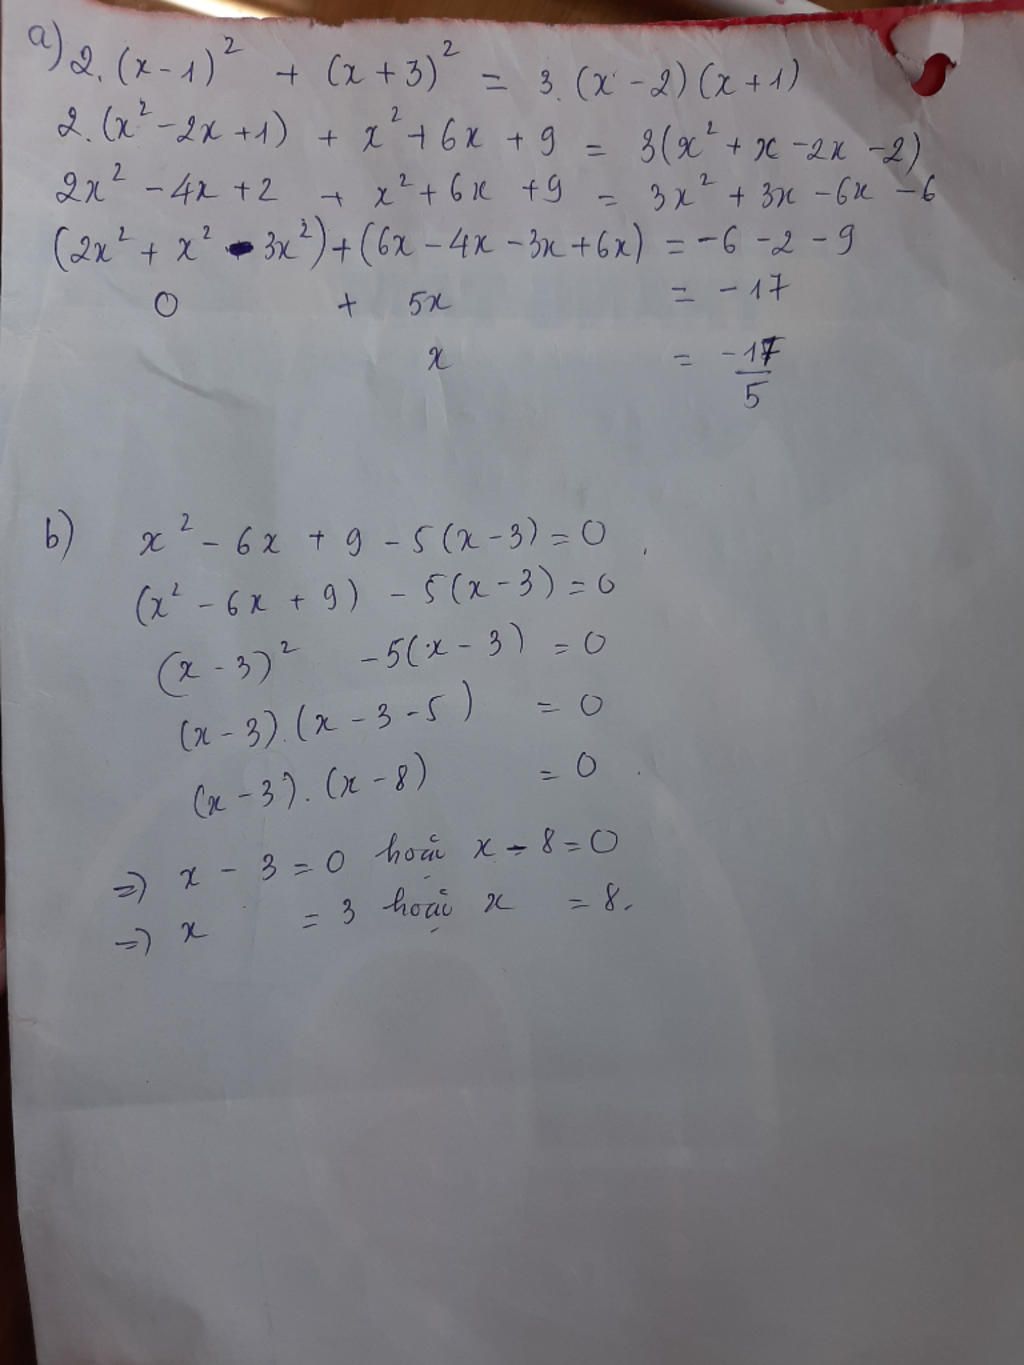 a) 2. (x - 1)² + (x + 3)² = 3. (x - 2)(x + 1)
2. (x² - 2x + 1) + x² + 6x + 9 = 3(x² + x - 2x - 2)
2x² - 4x + 2 + x² + 6x + 9 = 3x² + 3x - 6x - 6
(2x² + x² - 3x²) + (6x - 4x - 3x + 6x) = -6 - 2 - 9
0 + 5x = -17
x = -17/5
b) x² - 6x + 9 - 5(x - 3) = 0
(x² - 6x + 9) - 5(x - 3) = 0
(x - 3)² - 5(x - 3) = 0
(x - 3).(x - 3 - 5) = 0
(x - 3).(x - 8) = 0
=> x - 3 = 0 hoặc x - 8 = 0
=> x = 3 hoặc x = 8.